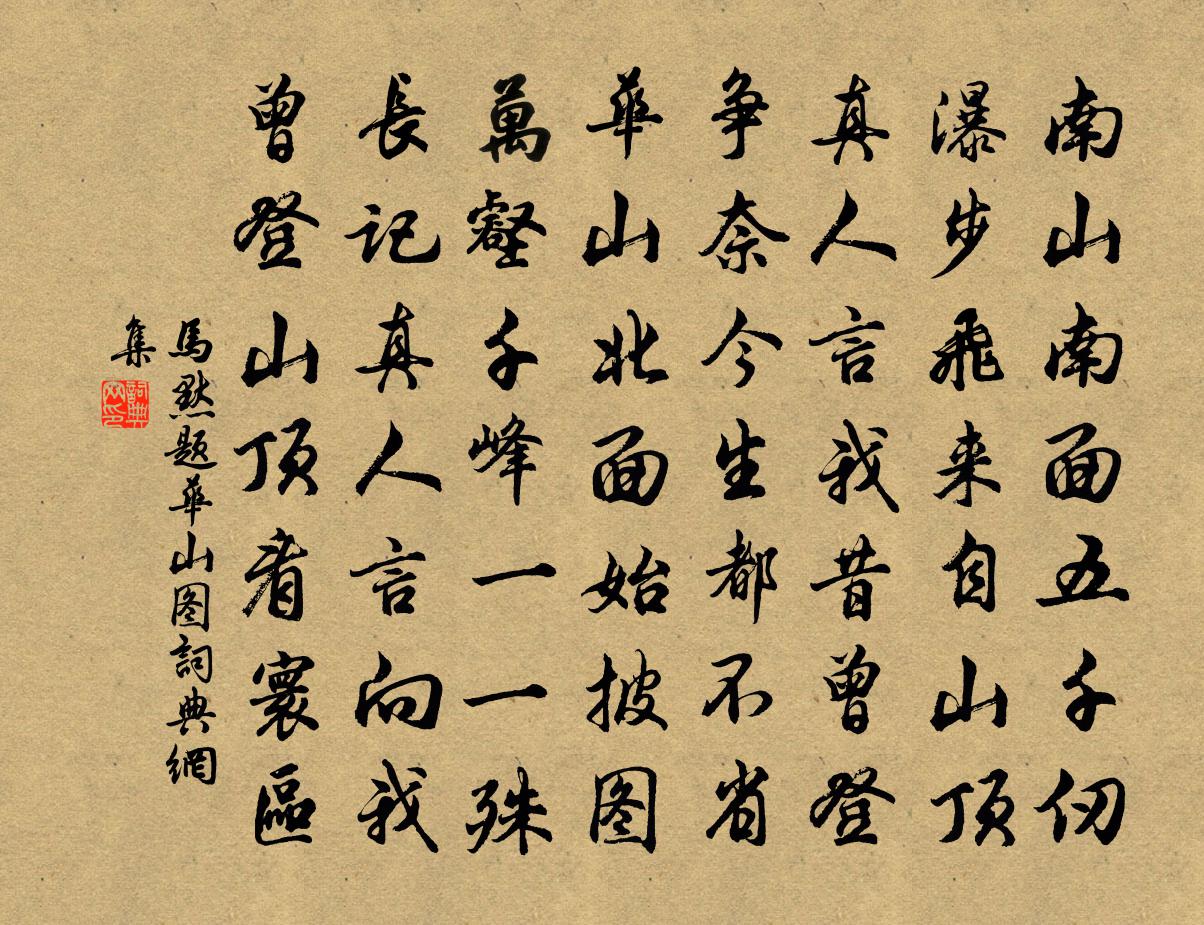 南山南面五千仞
瀑步飛来自山顶
真人言我昔曾登
争奈今生都不省
華山北面始披图
萬壑千峰一一殊
長記真人言向我
曾登山顶看寰區
馬默题華山图詞典網
集
詞典网印